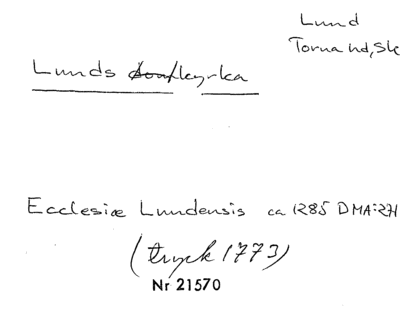 Lund
Torna hd, Sk
Lunds domkyrka
Ecclesiæ Lundensis ca 1285 DMA:271
(tryck 1773)
Nr 21570